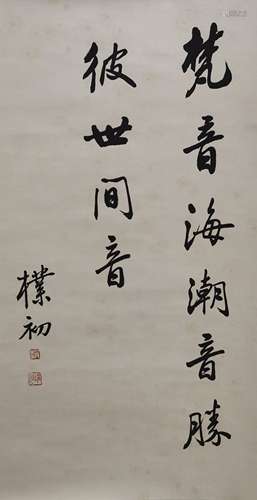 梵音海潮音勝
彼世间音
樸初